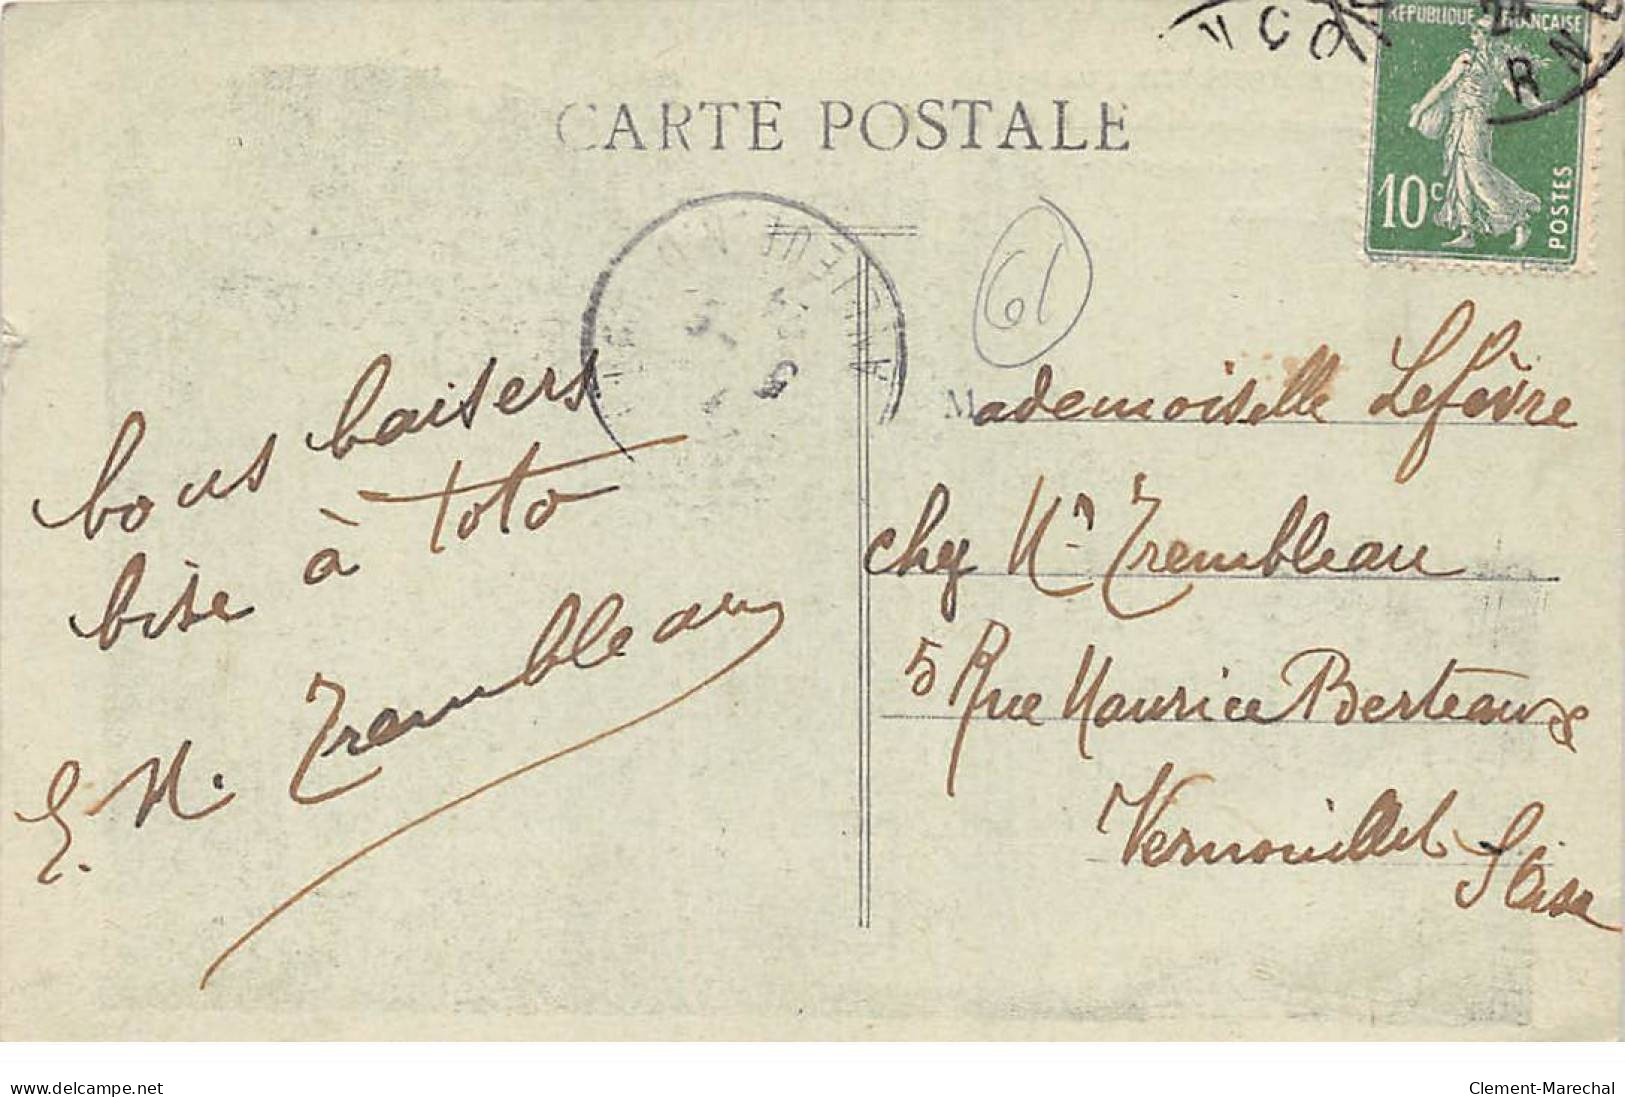 CARTE POSTALE
RÉPUBLIQUE FRANÇAISE
10c
POSTES
61
bons baisers
bise à Toto
E. M. Trembleau
Mademoiselle Lefèvre
chez Mr Trembleau
5 Rue Maurice Berteaux
Vernouillet
S Oise
www.delcampe.net
Clement-Marechal